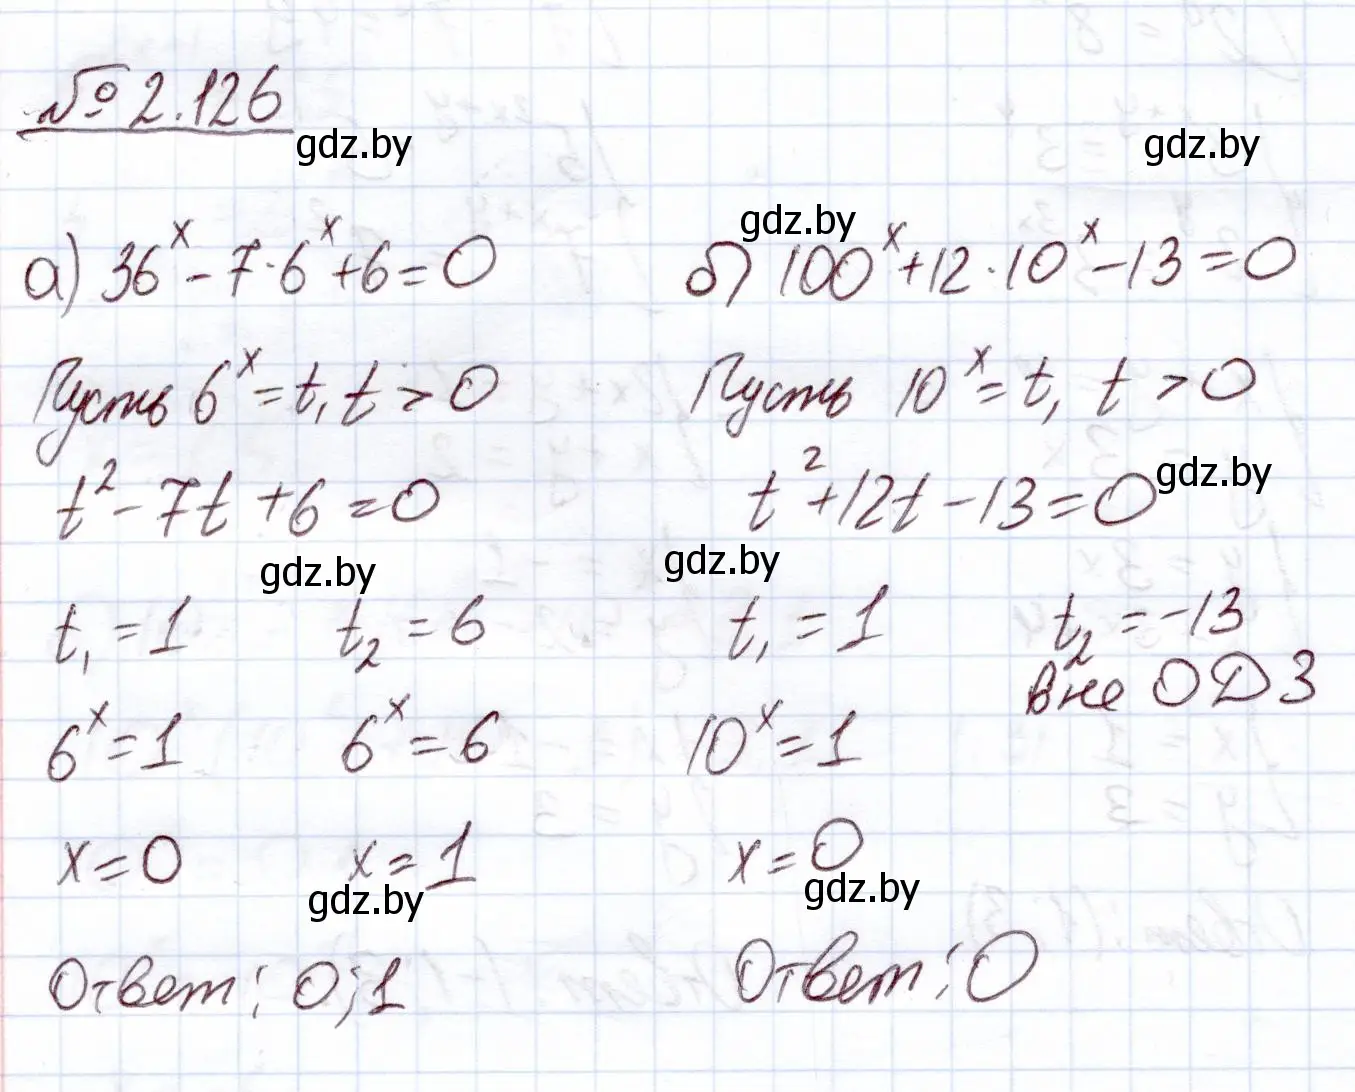 № 2.126
gdz.by
gdz.by
gdz.by
а) 36^x - 7·6^x + 6 = 0
Пусть 6^x = t, t > 0
t^2 - 7t + 6 = 0
gdz.by
t_1 = 1 t_2 = 6
6^x = 1 6^x = 6
x = 0 x = 1
gdz.by
Ответ: 0; 1
б) 100^x + 12·10^x - 13 = 0
Пусть 10^x = t, t > 0
t^2 + 12t - 13 = 0
gdz.by
gdz.by
t_1 = 1 t_2 = -13
вне ОДЗ
10^x = 1
x = 0
gdz.by
Ответ: 0